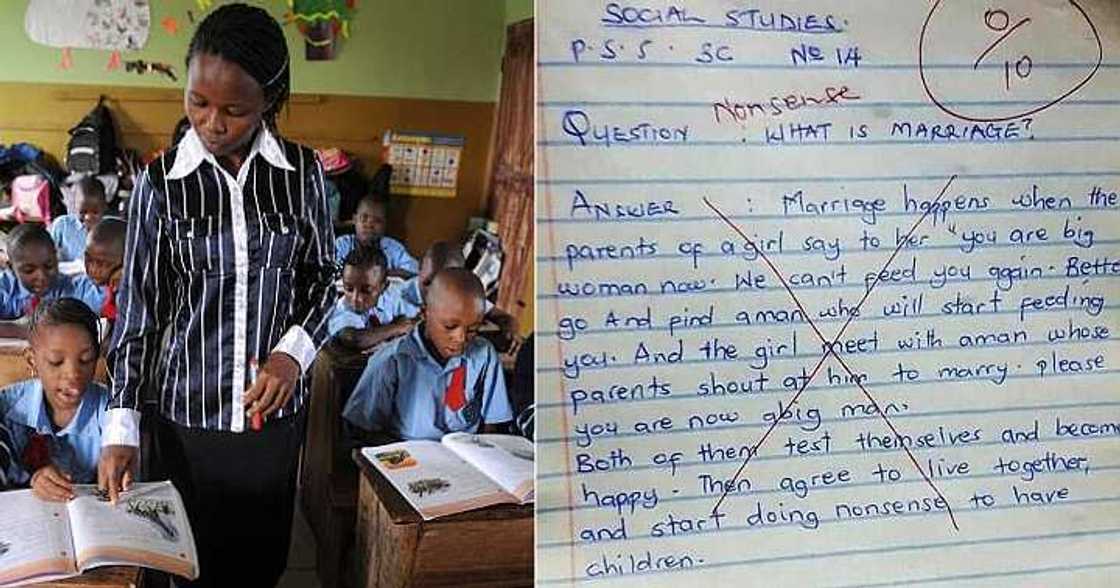 SOCIAL STUDIES.
P.S.S. SC No 14
0/10
Nonsense
QUESTION : WHAT IS MARRIAGE?
ANSWER : Marriage happens when the
parents of a girl say to her "you are big
woman now. We can't feed you again. Bette
go And find a man who will start feeding
you. And the girl meet with aman whose
parents shout at him to marry. please
you are now abig man.
Both of them test themselves and become
happy. Then agree to live together,
and start doing nonsense to have
children.